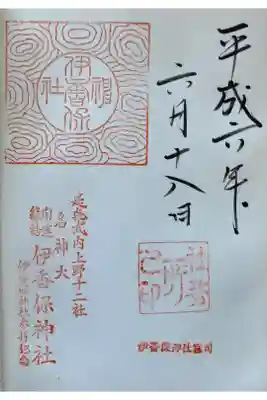 平成六年
六月十八日
伊香保
神社
延喜式内上野十二社
名神大
伊香保神社
社務所之印
伊香保神社宮司